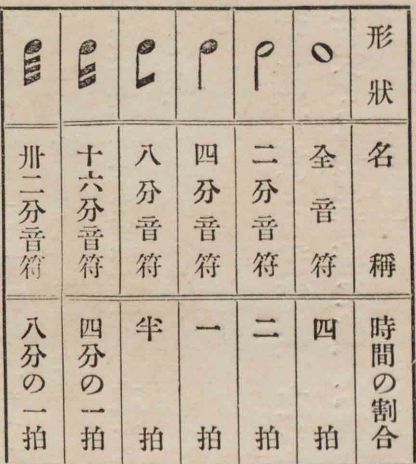 形狀 名稱 時間の割合
全音符 四拍
二分音符 二拍
四分音符 一拍
八分音符 半拍
十六分音符 四分の一拍
卅二分音符 八分の一拍